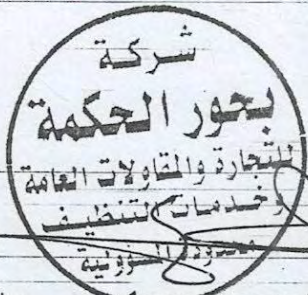 شركة
بحور الحكمة
للتجارة والمقاولات العامة
وخدمات التنظيف
محدودة المسؤولية